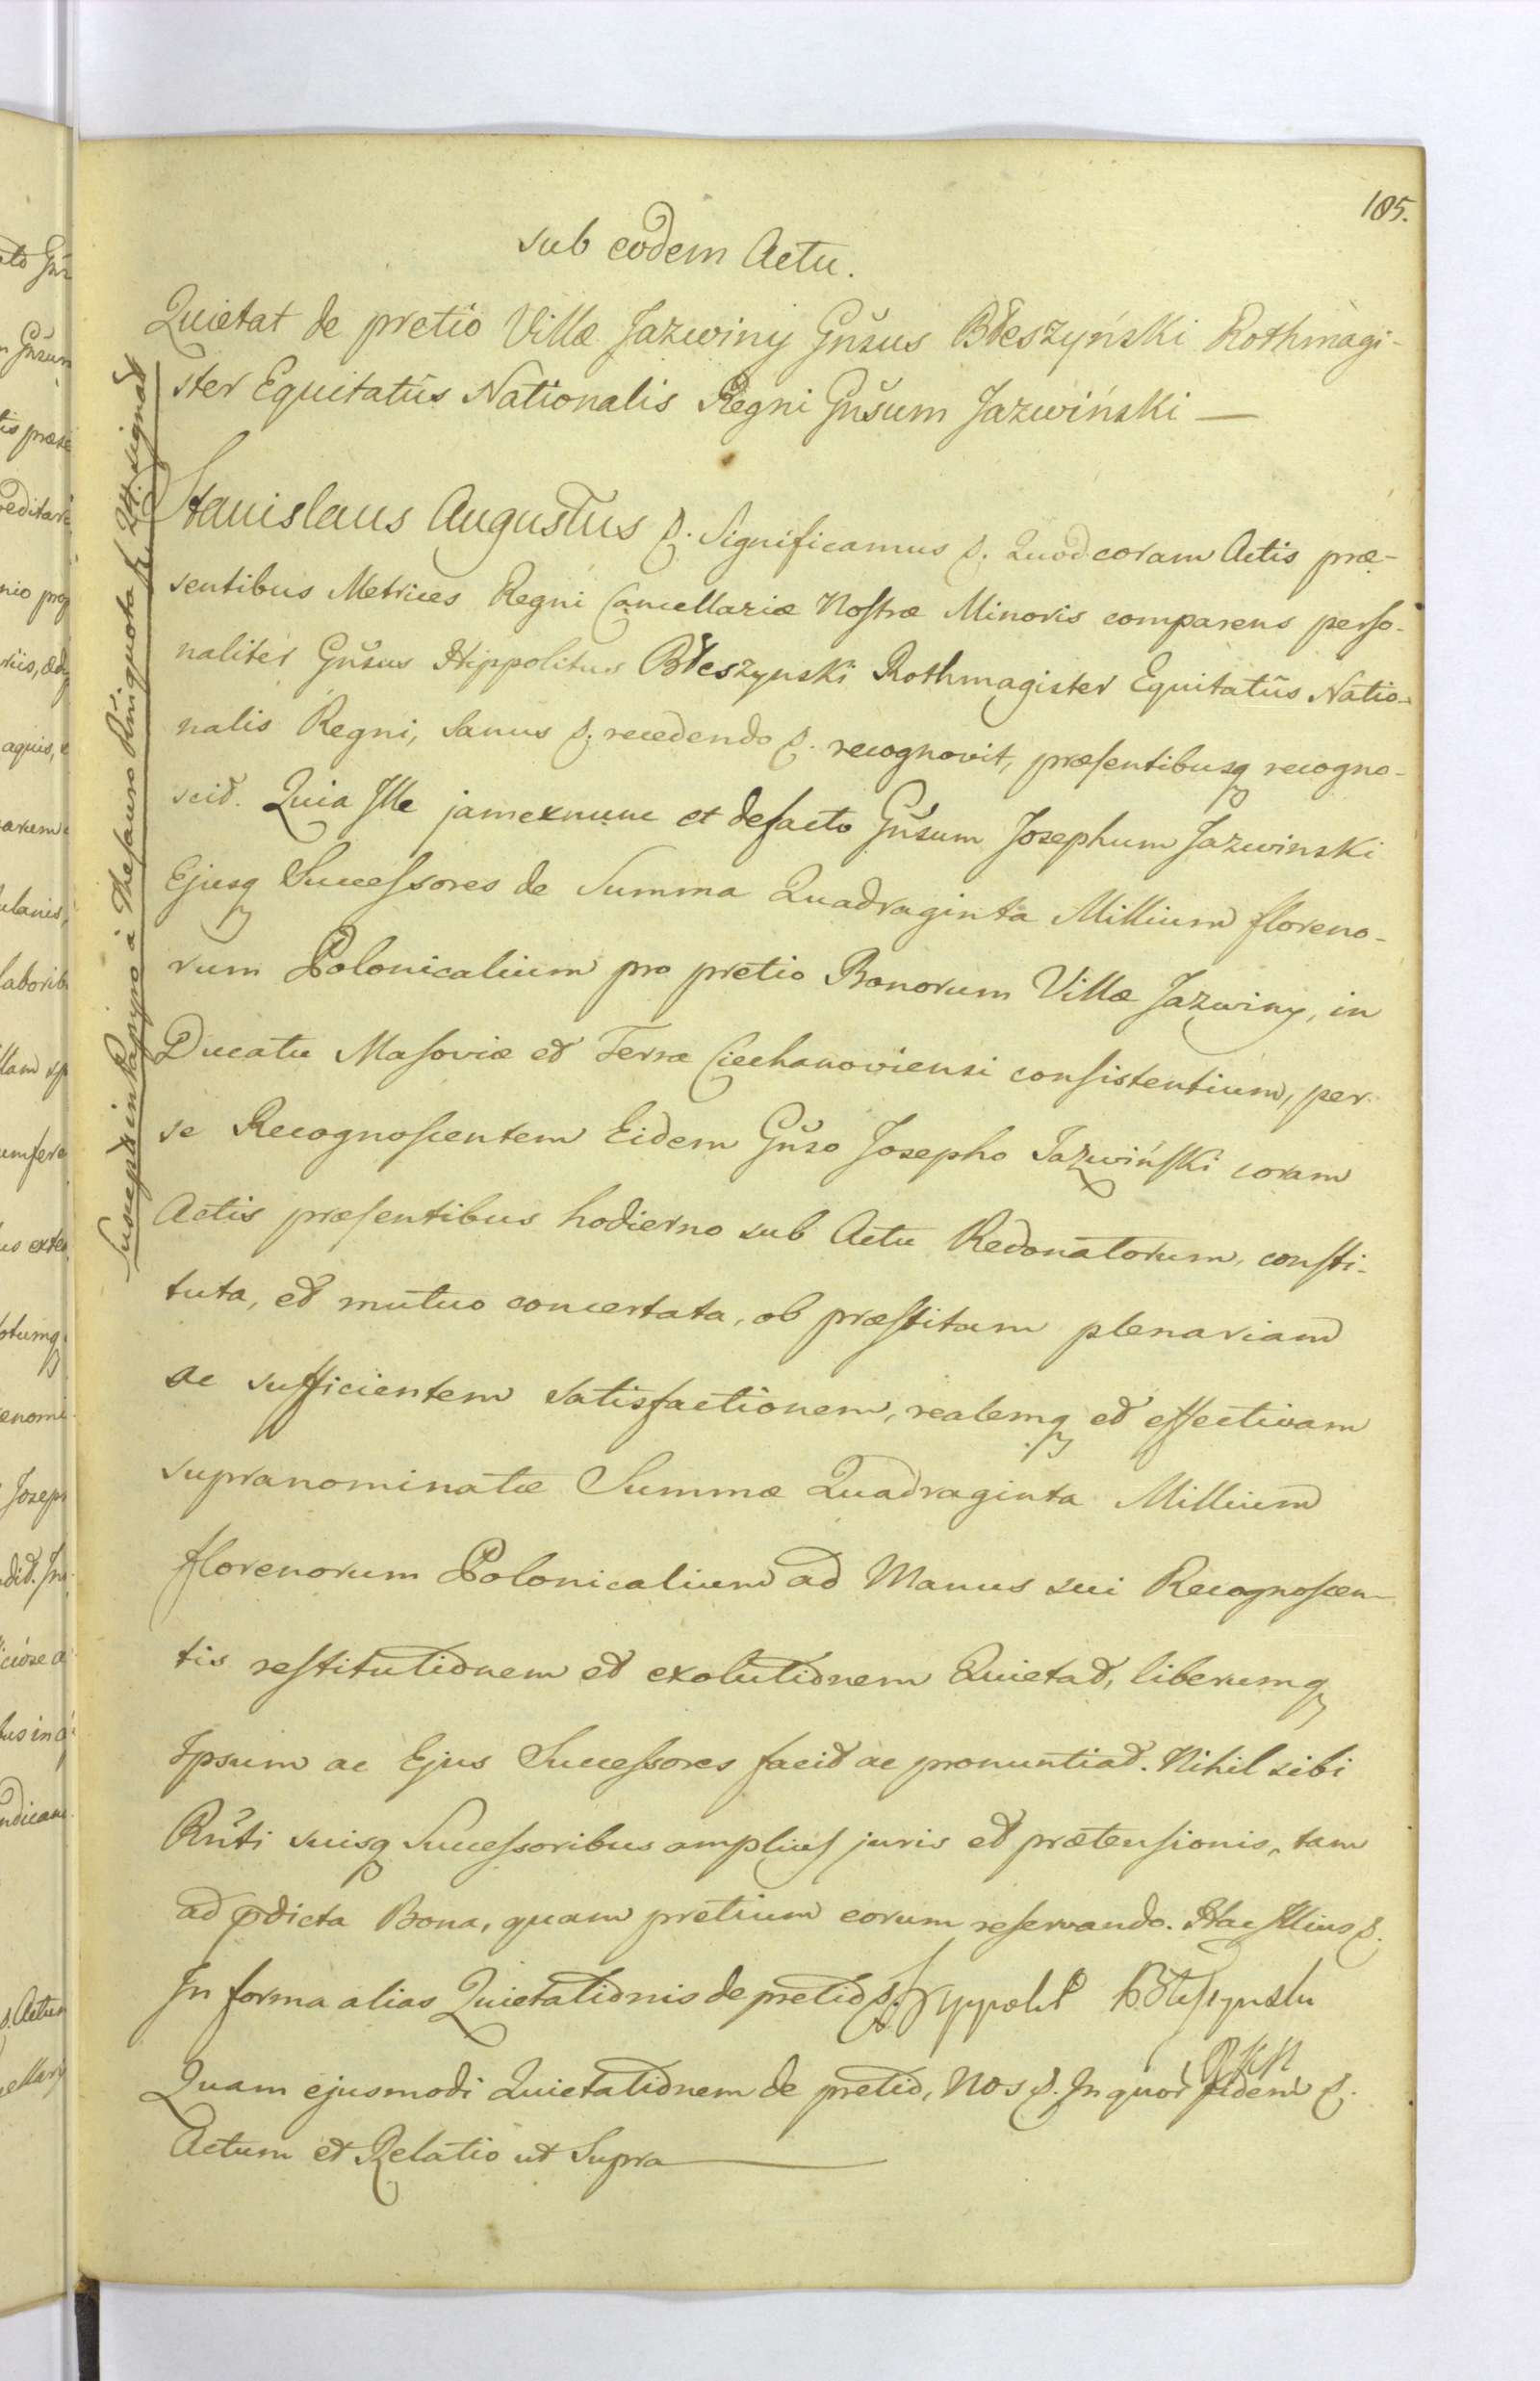 105.
sub eodem Actu.
Quietat de pretio Villæ Jazwiny Gnšus Błeszyński Rothmagi-
ster Equitatûs Nationalis Regni Gnšum Jazwiński —
Stanislaus Augustus &. Significamus &. Quod coram Actis præ-
sentibus Metrices Regni Cancellariæ Nostræ Minoris comparens perso-
naliter Gnšus Hippolitus Błeszynski Rothmagister Equitatûs Natio-
nalis Regni, Sanus &. recedendo &. recognovit, præsentibusq recogno-
scit. Quia Ille jamexnunc et defacto Gnšum Josephum Jazwinski
Ejusq Successores de Summa Quadraginta Millium floreno-
rum Polonicalium pro pretio Bonorum Villæ Jazwiny, in
Ducatu Masoviæ et Terræ Ciechanoviensi consistentium, per
se Recognoscentem Eidem Gnšo Josepho Jazwiński coram
Actis præsentibus hodierno sub Actu Redonatorum, consti-
tuta, et mutuo concertata, ob præstitam plenariam
ac sufficientem satisfactionem, realemq et effectivam
supranominatæ Summæ Quadraginta Millium
florenorum Polonicalium ad Manus sui Recognoscen-
tis restitutionem et exolutionem Quietat, liberumq
Ipsum ac Ejus Successores facit ac pronuntiat. Nihil sibi
Rnti suisq Successoribus amplius juris et prætensionis, tam
ad pdicta Bona, quam pretium eorum reservando. Hac Illius &.
In forma alias Quietationis de pretio &. Hyppolit Błeszynski
RKN
Quam ejusmodi Quietationem de pretio, Nos &. In quor fidem &.
Actum et Relatio ut Supra
Suscepta in Papyro à Thesauro Rni quota f. Zł. signat